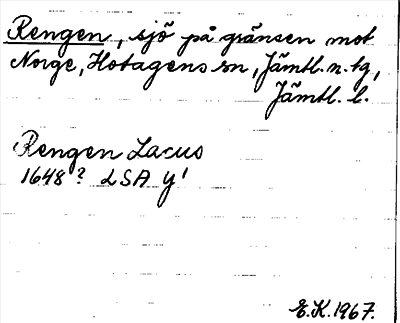 Rengen, sjö på gränsen mot
Norge, Hotagens sn, Jämtl. n. tg,
Jämtl. l.
Rengen Lacus
1648? LSA y'
E.K. 1967.